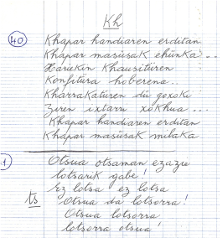 Kh
40 Khapar handiaren erditan
Khapar masusak ehünka...
Xarekin khausitüren
Konfitüra hoberena.
Kharrakatüren dü goxoki
Ziren ixtarra xokhua...
Khapar handiaren erditan
Khapar masusak milaka
1 Otsua otsaman ezazu
lotsarik gabe!
Ez lotsa ez lotsa
ts Otsua da lotsorra!
Otsua lotsorra
lotsorra otsua!